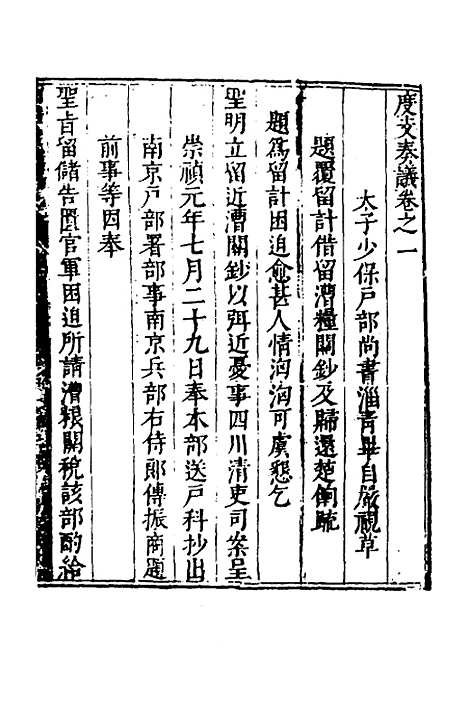 度支奏議卷之一
太子少保戶部尚書淄青畢自嚴視草
題覆留計借留漕糧關鈔及歸還楚餉疏
題為留計困迫愈甚人情洶洶可虞懇乞
聖明立留近漕關鈔以弭近憂事四川清吏司案呈
崇禎元年七月二十九日奉本部送戶科抄出
南京戶部署部事南京兵部右侍郎傅振商題
前事等因奉
聖旨留儲告匱官軍困迫所請漕糧關稅該部酌給